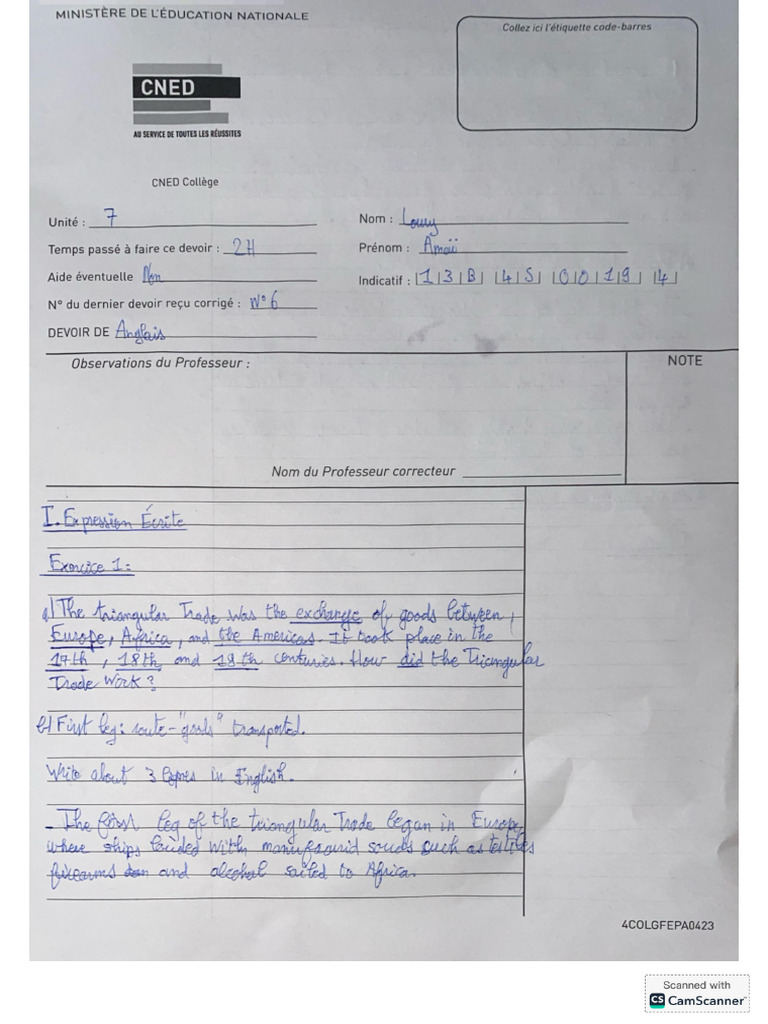 MINISTÈRE DE L'ÉDUCATION NATIONALE
Collez ici l'étiquette code-barres
CNED
AU SERVICE DE TOUTES LES RÉUSSITES
CNED Collège
Unité : 7
Nom : Loury
Temps passé à faire ce devoir : 2H
Prénom : Amaïï
Aide éventuelle Non
Indicatif : |1|3|B| |4|5| |0|0|1|9| |4|
N° du dernier devoir reçu corrigé : N°6
DEVOIR DE Anglais
Observations du Professeur :
NOTE
Nom du Professeur correcteur
I. Expression Écrite
Exercice 1:
a) The triangular Trade was the exchange of goods between
Europe, Africa, and the Americas. It took place in the
17th, 18th and 18th centuries. How did the Triangular
Trade Work?
b) First leg: route - "goals" transported.
Write about 3 lignes in English.
- The first leg of the triangular Trade began in Europe,
where ships with such as
firearms and alcohol sailed to Africa.
4COLGFEPA0423
Scanned with
CS CamScanner